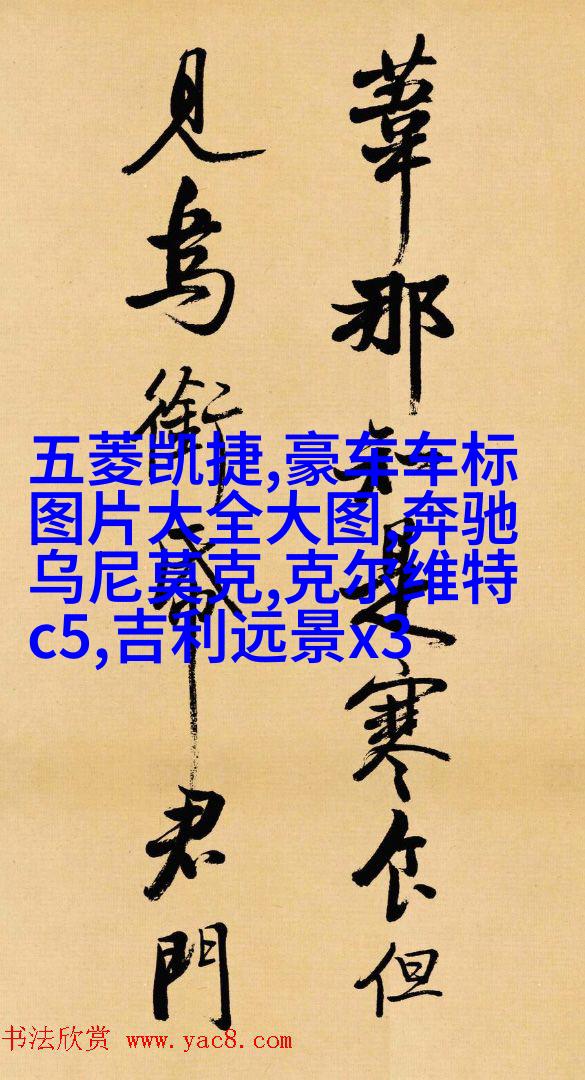 葦那知是寒食但
見烏銜帋君門
五菱凯捷,豪车车标
图片大全大图,奔驰
乌尼莫克,克尔维特
c5,吉利远景x3
书法欣赏 www.yac8.com